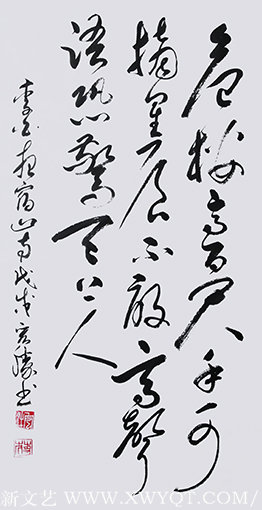 危楼高百尺手可
摘星辰不敢高聲
语恐驚天上人
李白夜宿山寺戊戌书
新文艺 WWW.XWYQT.COM/